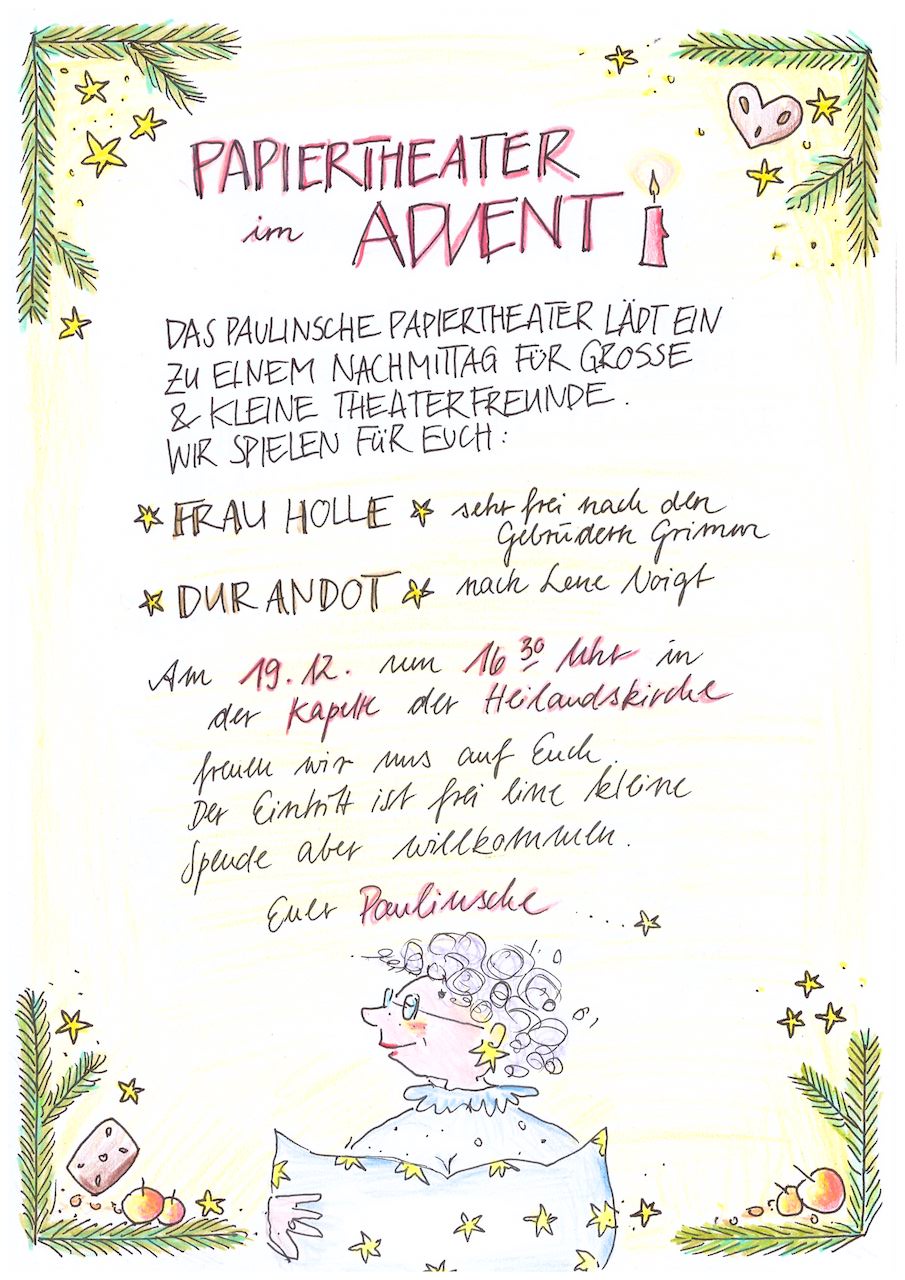 PAPIERTHEATER
im ADVENT
DAS PAULINSCHE PAPIERTHEATER LÄDT EIN
ZU EINEM NACHMITTAG FÜR GROSSE
& KLEINE THEATERFREUNDE.
WIR SPIELEN FÜR EUCH:
FRAU HOLLE sehr frei nach den
Gebrüdern Grimm
DURANDOT nach Lene Voigt
Am 19.12. um 16 30 Uhr in
der Kapelle der Heilandskirche
freuen wir uns auf Euch.
Der Eintritt ist frei eine kleine
Spende aber willkommen.
Euer Paulinsche ....